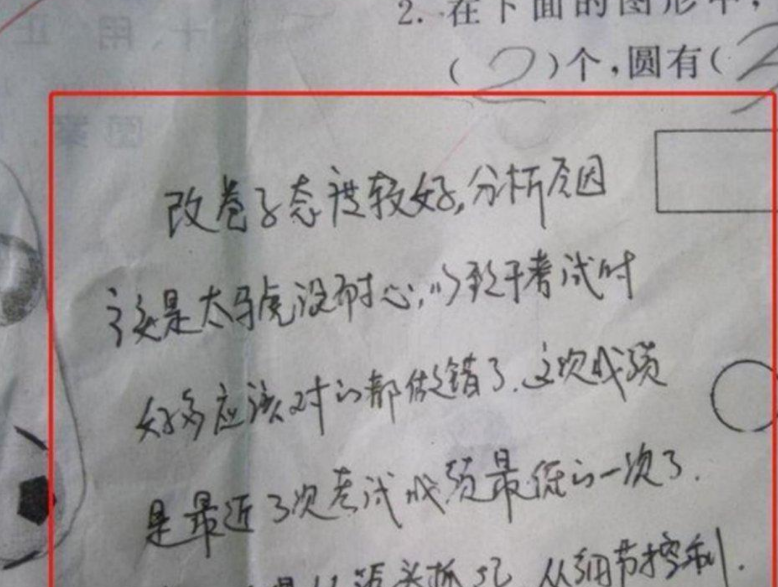 2. 在下面的图形中,
(2)个,圆有(3
改卷子态度较好,分析原因
应该是太马虎没耐心,以致于考试时
好多应该对的都做错了.这次成绩
是最近3次考试成绩最低的一次了.
源头抓起 从细节控制.